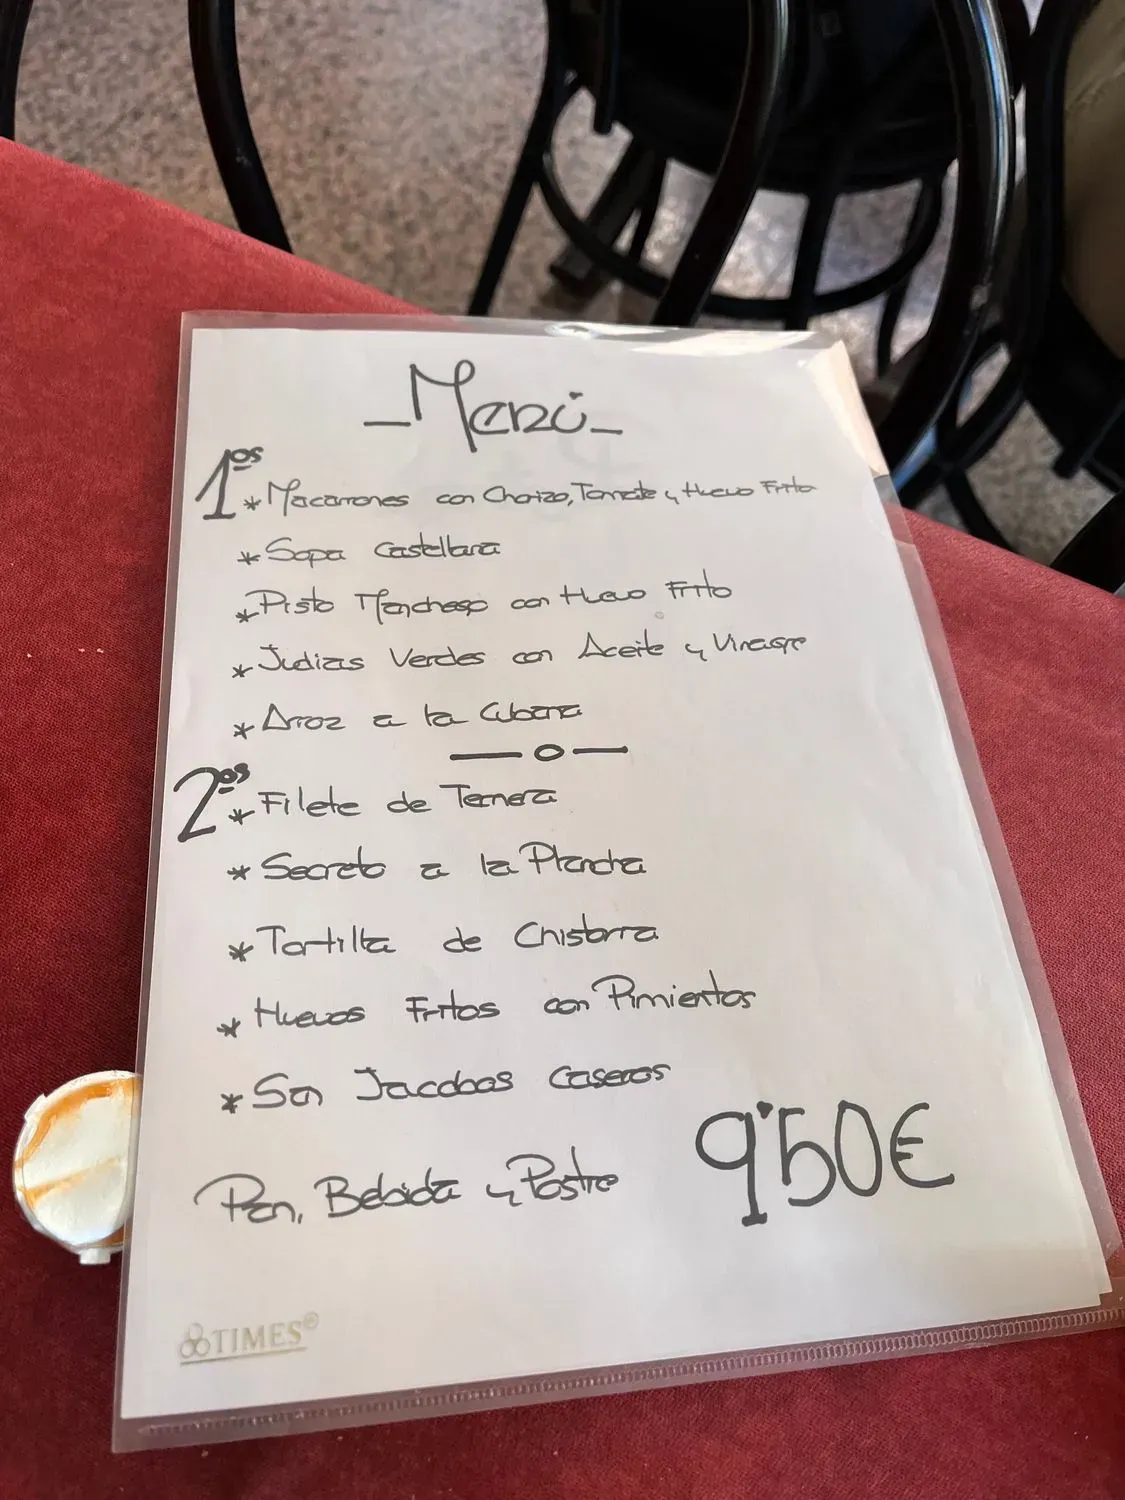 _Menú_
1os
* Macarrones con Chorizo, Tomate y Huevo Frito
* Sopa Castellana
* Pisto Manchego con Huevo Frito
* Judias Verdes con Aceite y Vinagre
* Arroz a la Cubana
—o—
2os
* Filete de Ternera
* Secreto a la Plancha
* Tortilla de Chistorra
* Huevos Fritos con Pimientos
* San Jacobos Caseros
Pan, Bebida y Postre 9'50€
TIMES®